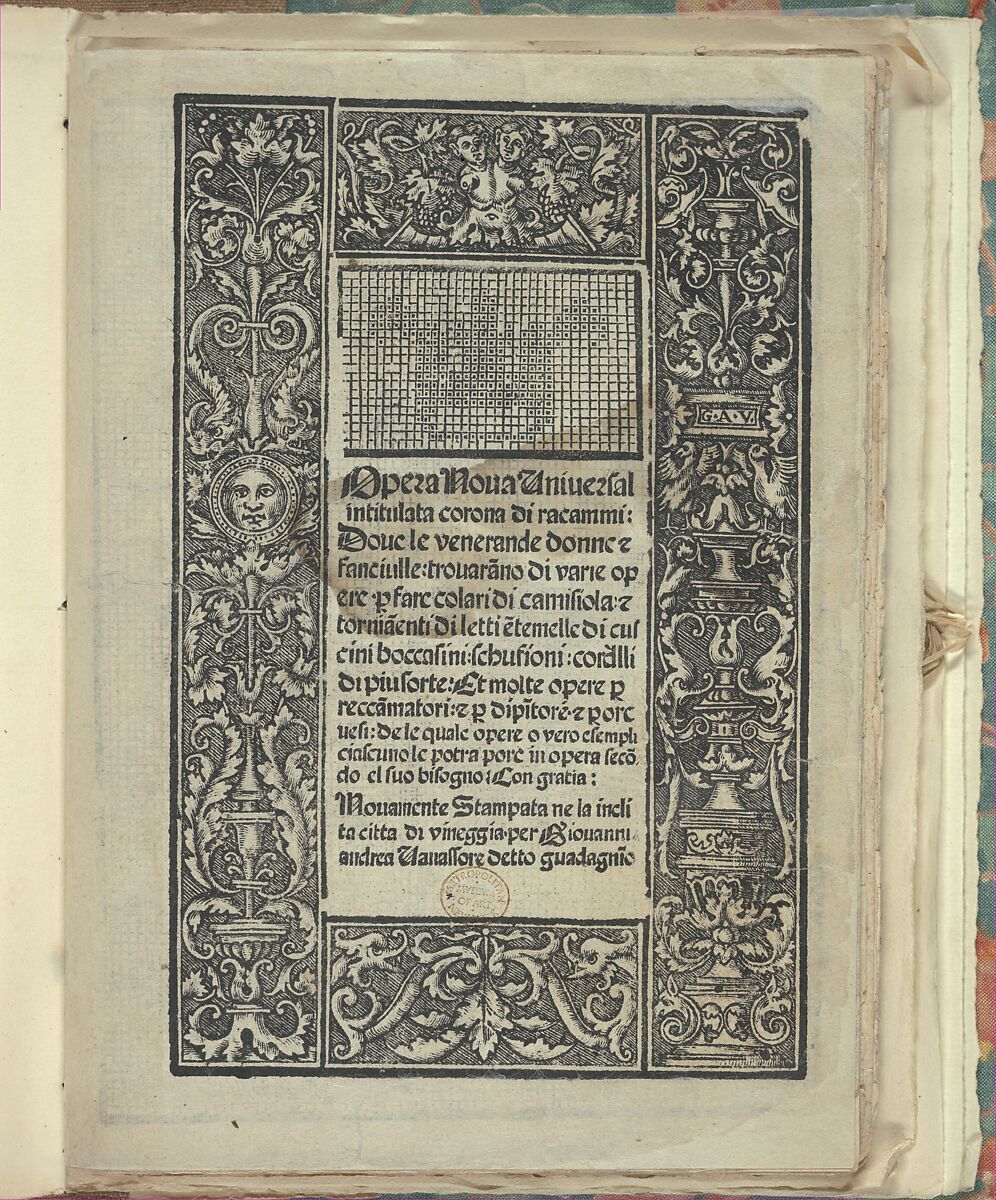 G·A·V·
Opera Noua Uniuersal
intitulata corona di racammi:
Doue le venerande donne ⁊
fanciulle:trouarãno di varie op
ere·ꝑ fare colari di camisiola·⁊
torniãenti di letti ẽtemelle di cus
cini boccasini:schufioni:cordlli
di piu sorte:Et molte opere ꝑ
reccãmatori:⁊ ꝑ dipĩtore·⁊ ꝑ orc
uesi:de le quale opere o vero esempli
ciascuno le potra pore in opera secõ
do el suo bisogno:Con gratia:
Nouamente Stampata ne la incli
ta citta di vineggia·per Giouanni
andrea Vauassore detto guadagnĩo
METROPOLITAN
MUSEUM
OF ART
NEW YORK